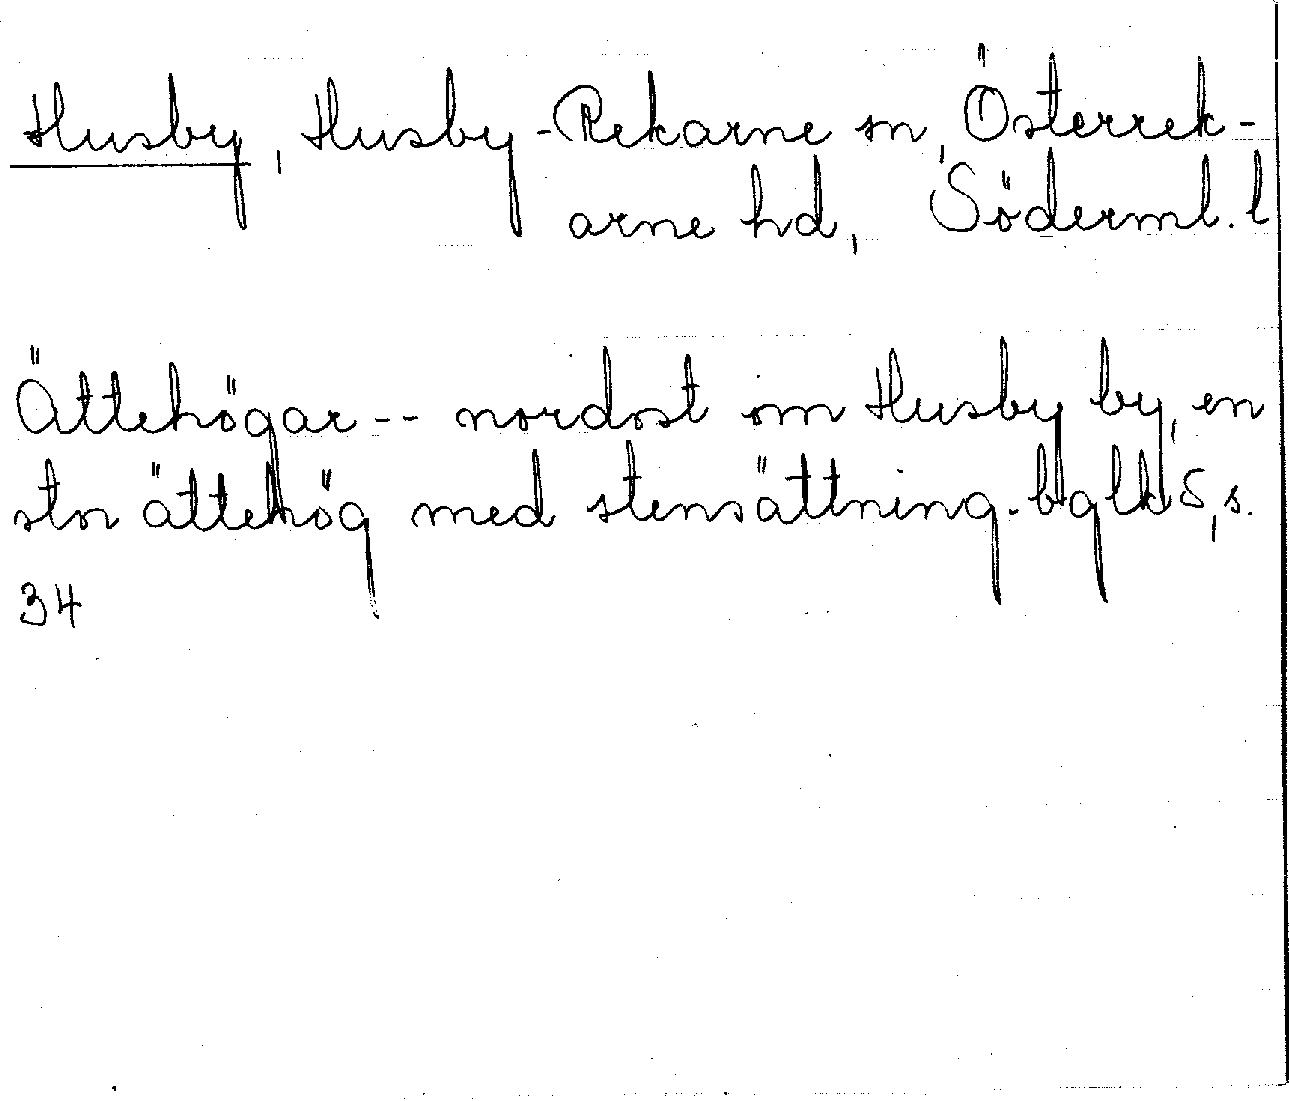 Husby, Husby-Rekarne sn, Österrek-
arne hd, Söderml. l
Ättehögar -- nordost om Husby by, en
stor ättehög med stensättning. bglk 5, s.
34